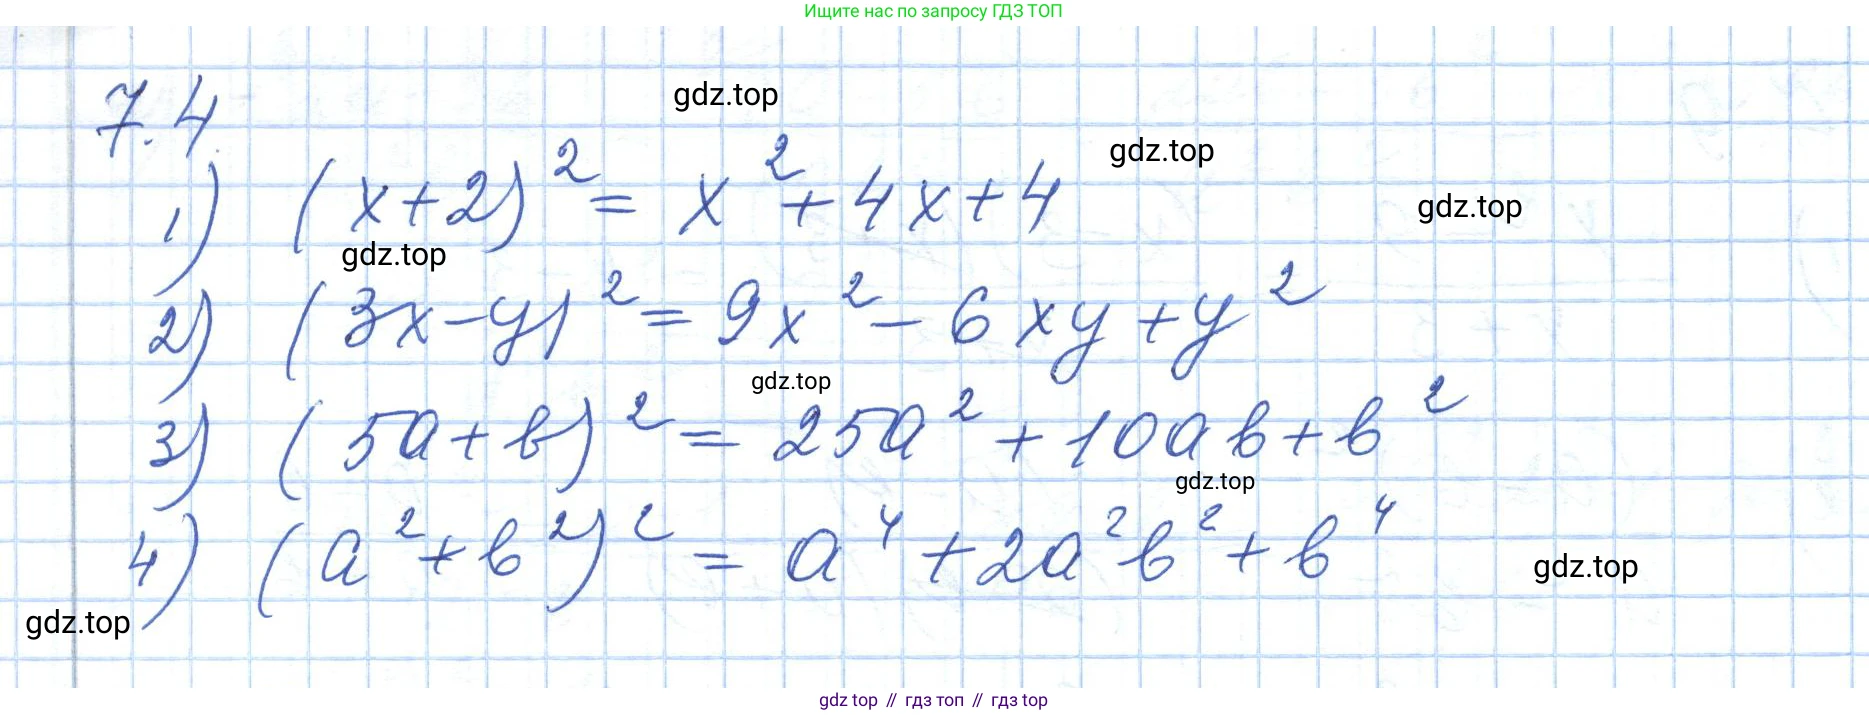 Ищите нас по запросу ГДЗ ТОП
7.4
gdz.top
gdz.top
1) (x+2)² = x² + 4x + 4
gdz.top
gdz.top
2) (3x-y)² = 9x² - 6xy + y²
gdz.top
3) (5a+b)² = 25a² + 10ab + b²
gdz.top
4) (a²+b²)² = a⁴ + 2a²b² + b⁴
gdz.top
gdz.top
gdz top // гдз топ // гдз top